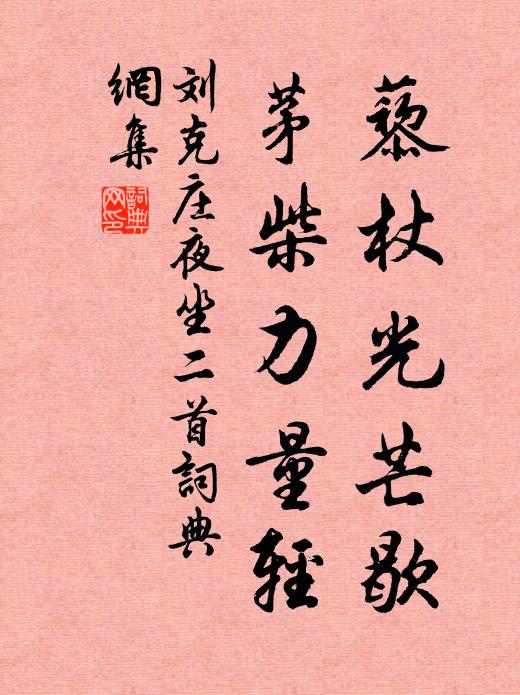 藜杖光芒歇
茅柴力量輕
刘克庄夜坐二首詞典
網集
詞典网印